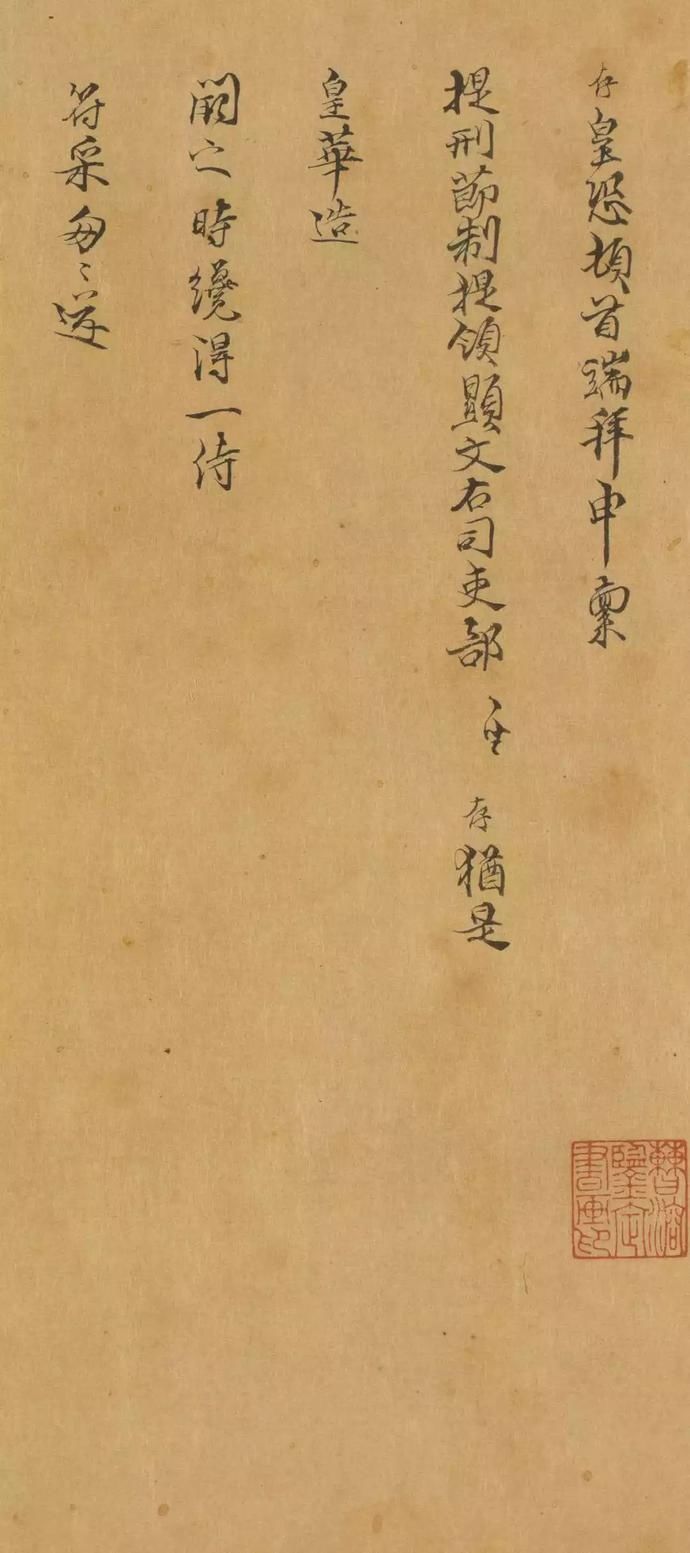 存皇恐頓首端拜申稟
提刑節制提領顯文右司吏部 存猶是
皇華造
闕之時纔得一侍
符采匆々
曹溶
鑒定
書畫印